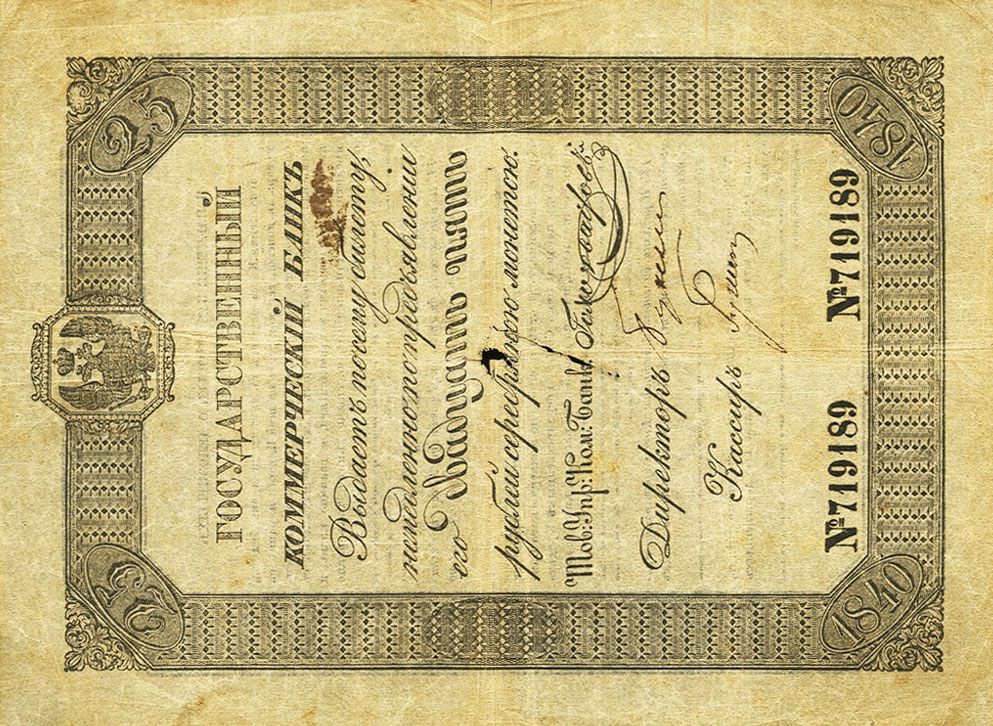 25 25
ГОСУДАРСТВЕННЫЙ
КОММЕРЧЕСКІЙ БАНКЪ
Выдаетъ по сему билету,
немедленно по предъявленіи
его Двадцать пять
рублей серебряною монетою.
Тов: Упр: Ком: Банк:
Директоръ
Кассиръ
№719189 №719189
1840 1840